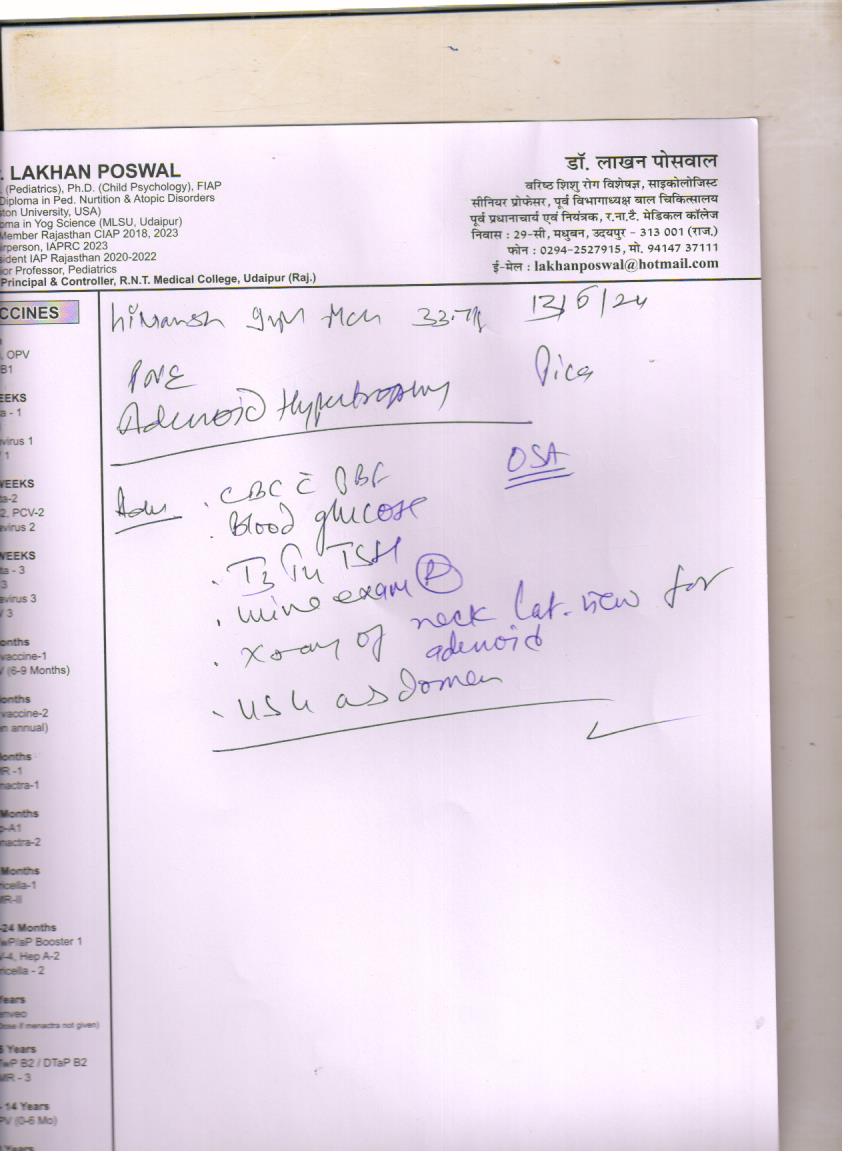 . LAKHAN POSWAL
. (Pediatrics), Ph.D. (Child Psychology), FIAP
Diploma in Ped. Nurtition & Atopic Disorders
ton University, USA)
oma in Yog Science (MLSU, Udaipur)
Member Rajasthan CIAP 2018, 2023
irperson, IAPRC 2023
sident IAP Rajasthan 2020-2022
ior Professor, Pediatrics
Principal & Controller, R.N.T. Medical College, Udaipur (Raj.)
डॉ. लाखन पोसवाल
वरिष्ठ शिशु रोग विशेषज्ञ, साइकोलोजिस्ट
सीनियर प्रोफेसर, पूर्व विभागाध्यक्ष बाल चिकित्सालय
पूर्व प्रधानाचार्य एवं नियंत्रक, र.ना.टै. मेडिकल कॉलेज
निवास : 29-सी, मधुबन, उदयपुर - 313 001 (राज.)
फोन : 0294-2527915, मो. 94147 37111
ई-मेल : lakhanposwal@hotmail.com
CCINES
, OPV
B1
EEKS
a - 1
virus 1
1
WEEKS
ta-2
2, PCV-2
avirus 2
WEEKS
ta - 3
3
avirus 3
V 3
onths
vaccine-1
V (6-9 Months)
onths
vaccine-2
n annual)
onths
R -1
nactra-1
Months
p-A1
nactra-2
Months
ricella-1
MR-II
-24 Months
wP/aP Booster 1
V-4, Hep A-2
ricella - 2
Years
enveo
Dose if menactra not given)
5 Years
TwP B2 / DTaP B2
MR - 3
- 14 Years
PV (0-6 Mo)
Years
Himansh 33.7 13/6/24
PNE Pica
Adenoid Hypertrophy
OSA
Adv . CBC c PBF
. Blood glucose
. T3 T4 TSH
. urine exam (R)
. Xray of neck Lat. view for
adenoid
. USG abdomen